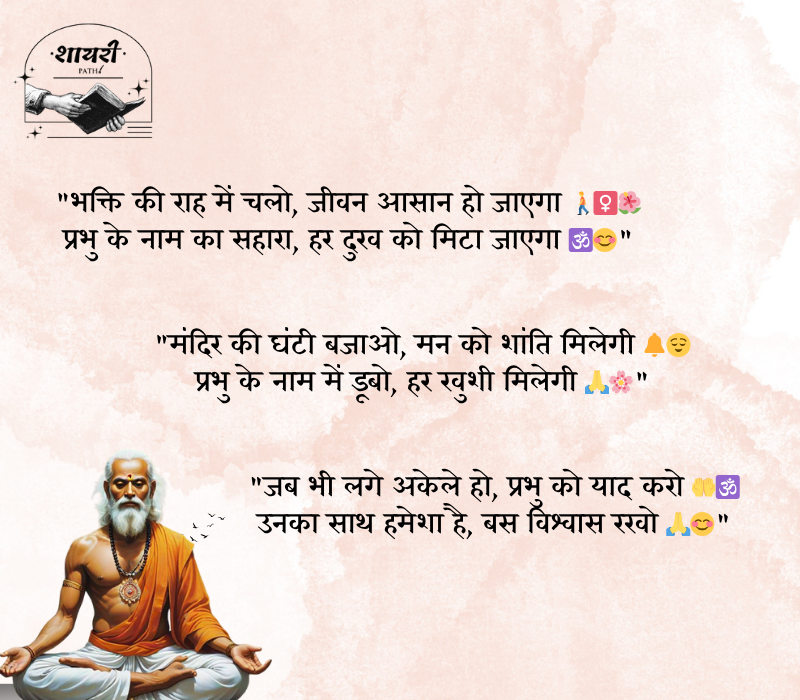 शायरी
PATH
"भक्ति की राह में चलो, जीवन आसान हो जाएगा 🚶♀️🌺
प्रभु के नाम का सहारा, हर दुख को मिटा जाएगा 🕉️😊"
"मंदिर की घंटी बजाओ, मन को शांति मिलेगी 🔔😌
प्रभु के नाम में डूबो, हर खुशी मिलेगी 🙏🌸"
"जब भी लगे अकेले हो, प्रभु को याद करो 🤲🕉️
उनका साथ हमेशा है, बस विश्वास रखो 🙏😊"